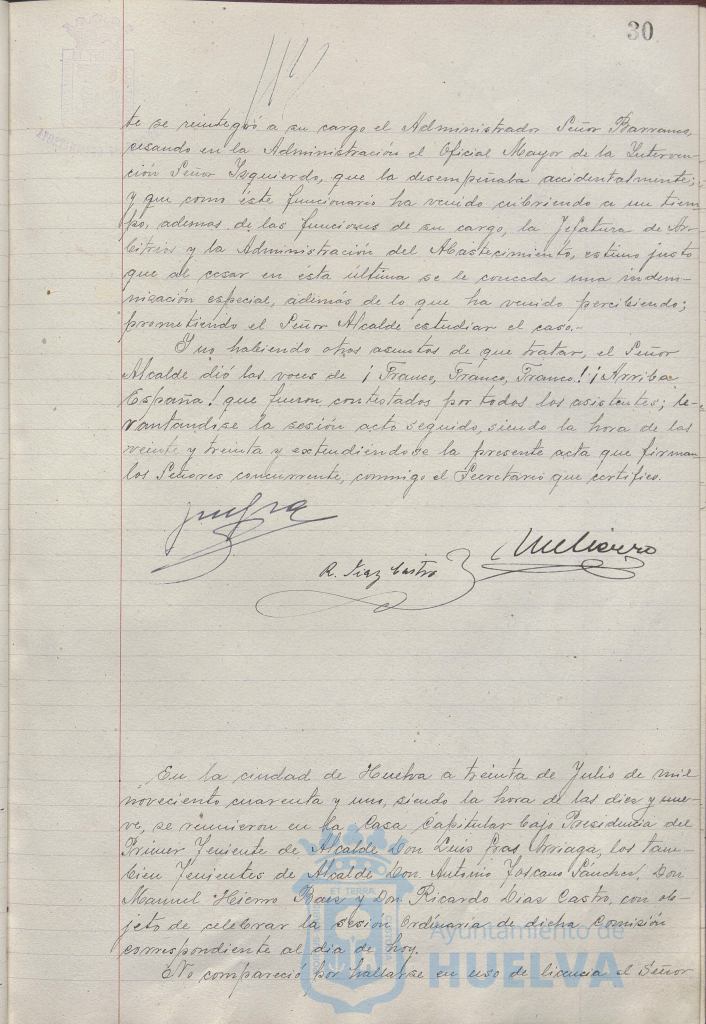 30
te se reintegró a su cargo el Administrador Señor Barranco,
cesando en la Administración el Oficial Mayor de la Interven-
ción Señor Izquierdo, que la desempeñaba accidentalmente;
y que como éste funcionario ha venido cubriendo a un tiem-
po, ademas de las funciones de su cargo, la Jefatura de Ar-
bitrios y la Administración del Abastecimiento, estima justo
que al cesar en esta última se le conceda una indem-
nización especial, además de lo que ha venido percibiendo;
prometiendo el Señor Alcalde estudiar el caso.-
Y no habiendo otros asuntos de que tratar, el Señor
Alcalde dió las voces de ¡Franco, Franco, Franco! ¡Arriba
España! que fueron contestados por todos los asistentes; le-
vantandose la sesión acto seguido, siendo la hora de las
veinte y treinta y extendiendose la presente acta que firman
los Señores concurrente, conmigo el Secretario que certifico.
R. Diaz Castro
En la ciudad de Huelva a treinta de Julio de mil
noveciento cuarenta y uno, siendo la hora de las diez y nue-
ve, se reunieron en la Casa Capitular bajo Presidencia del
Primer Teniente de Alcalde Don Luis Gras Arriaga, los tam-
bien Tenientes de Alcalde Don Antonio Toscano Sánchez, Don
Manuel Hierro Baez y Don Ricardo Dias Castro, con ob-
jeto de celebrar la sesión Ordinaria de dicha Comisión
correspondiente al dia de hoy.
No compareció por hallarse en uso de licencia el Señor
ET TERRA
Ayuntamiento de
HUELVA